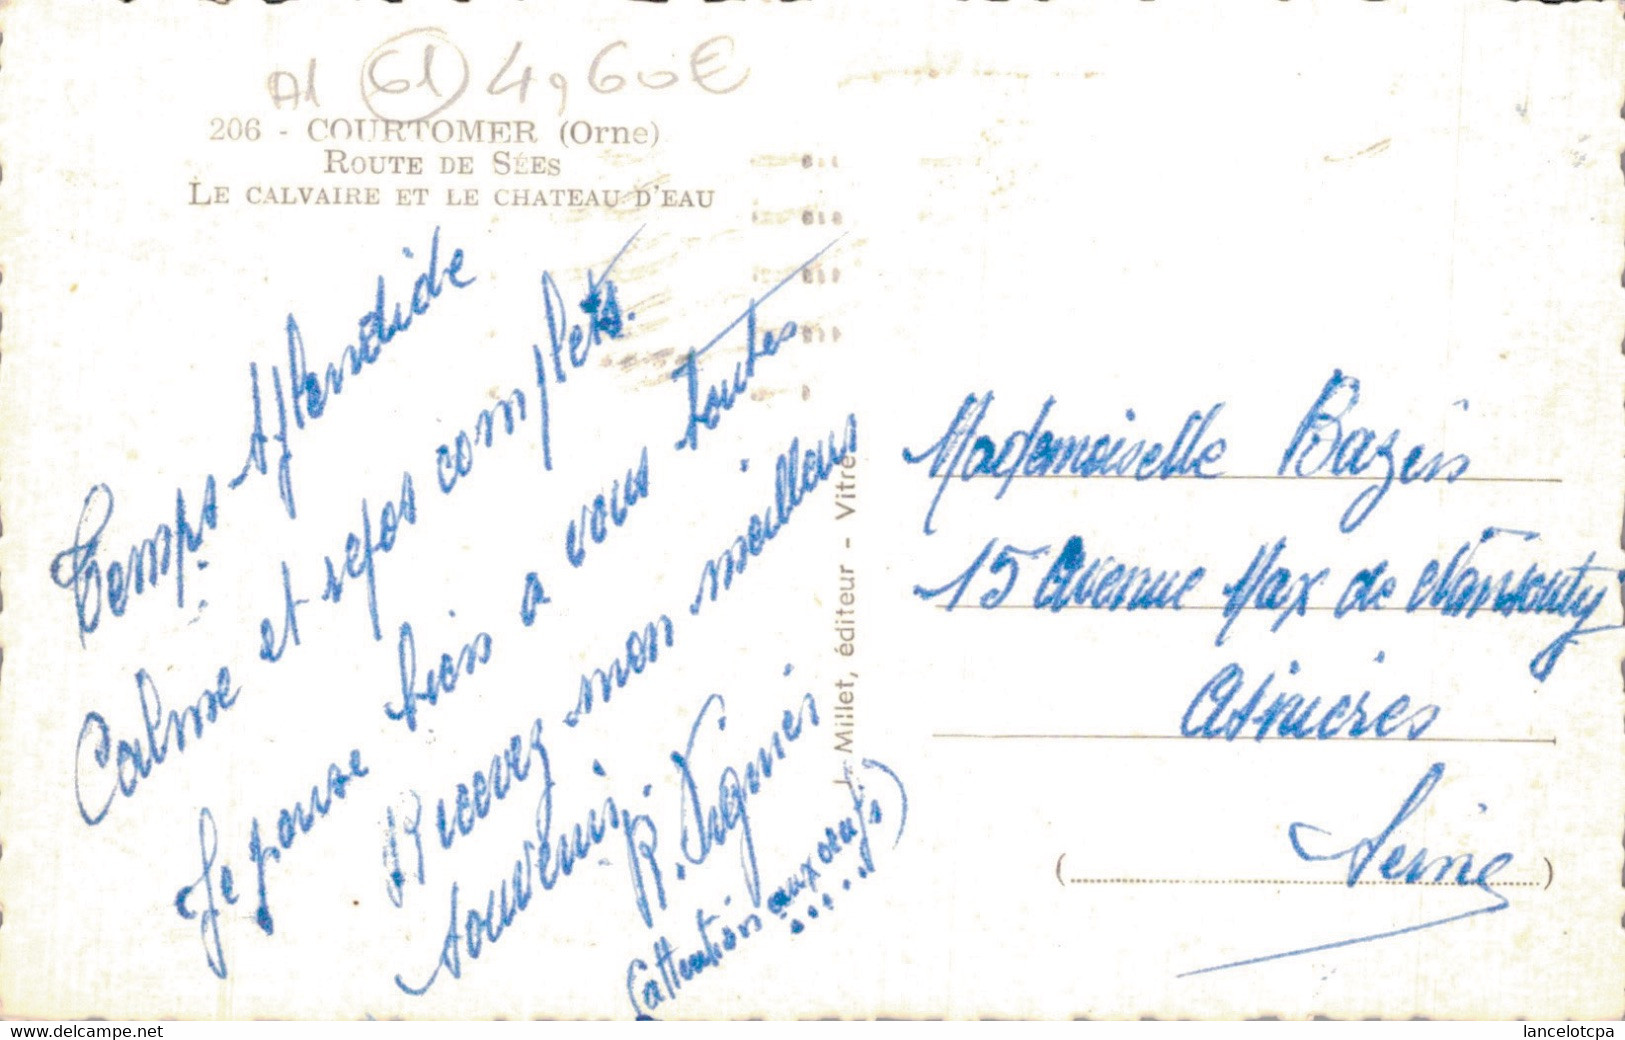 A1 (61) 4,60€
206 - COURTOMER (Orne)
ROUTE DE SÉES
LE CALVAIRE ET LE CHATEAU D'EAU
Temps splendide
Calme et repos complets.
Je pense bien a vous toutes
Recevez mon meilleur
souvenir.
R. Vignier
(attention aux oeufs)
.....
J. Millet, éditeur - Vitré
Mademoiselle Bazin
15 Avenue Max de Nansouty
Asnieres
(Seine)
delcampe.net
lancelotcpa